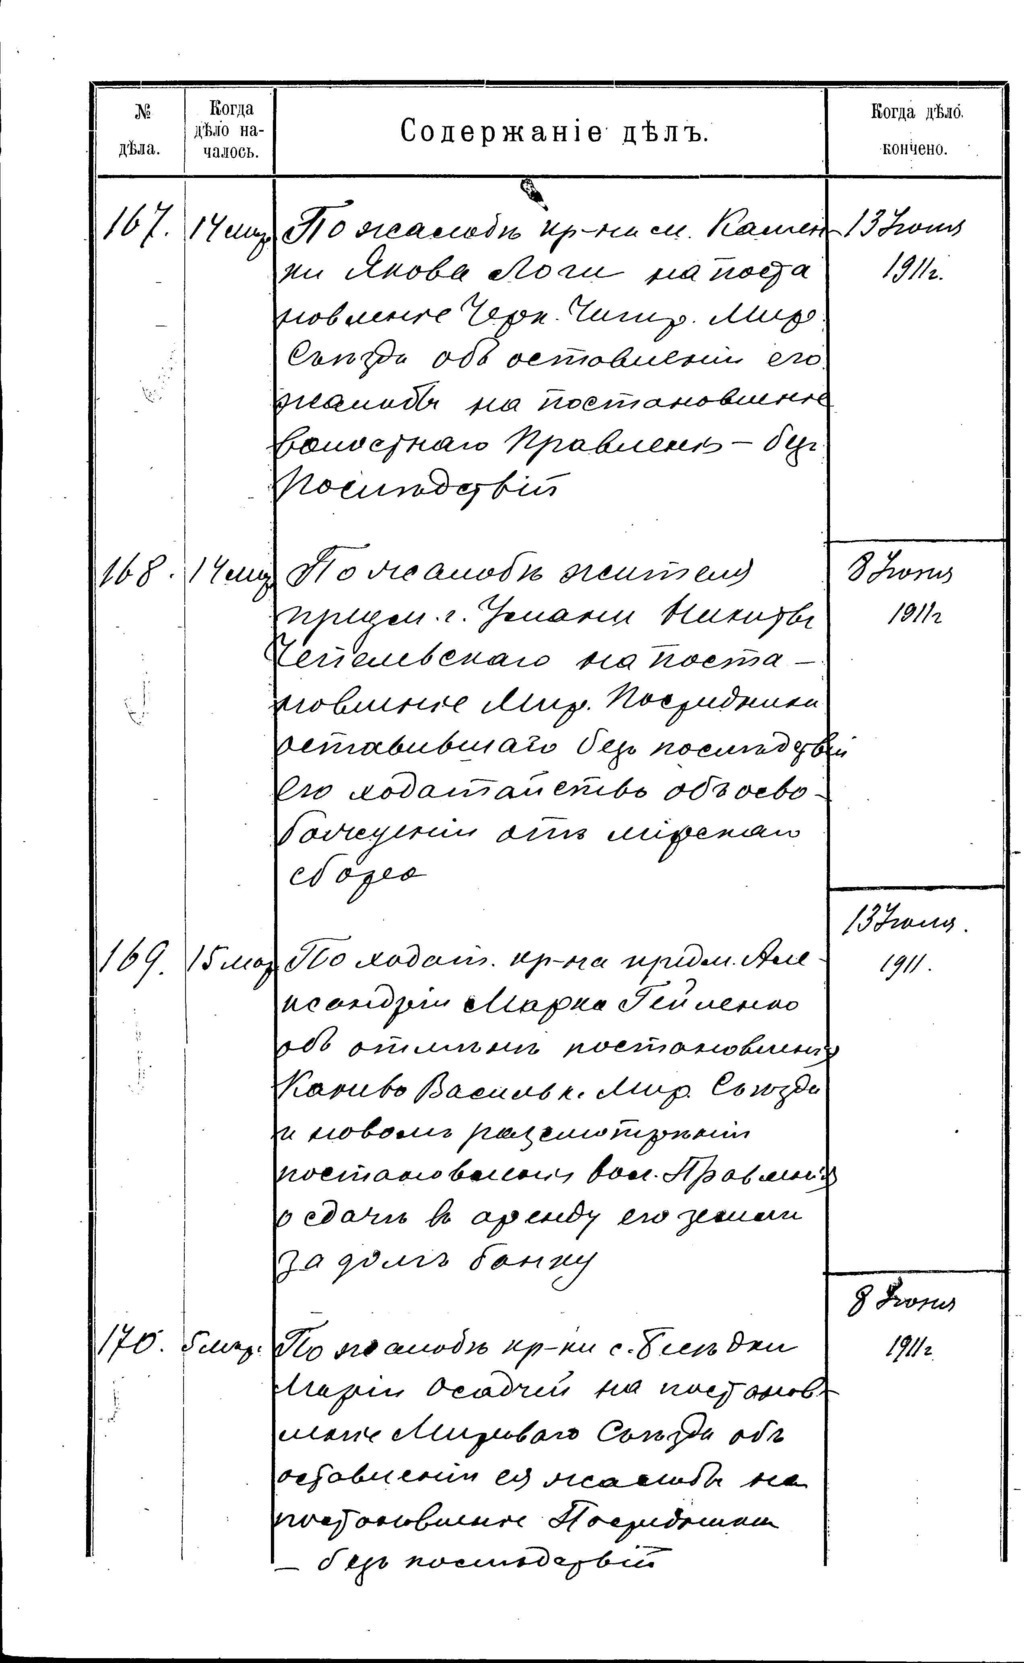 № дѣла. Когда дѣло началось. Содержаніе дѣлъ. Когда дѣло кончено.
167. 14 мар. По жалобѣ кр-на м. Камен- 13 Іюня
ки Якова Логи на поста 1911 г.
новленіе Черк. Чигир. Мир.
Съѣзда объ оставленіи его
жалобы на постановленіе
волостнаго Правленія – безъ
послѣдствій
168. 14 мар По жалобѣ жителя 8 Іюня
предм. г. Умани Никиты 1911 г
на поста –
новленіе Мир. Посредника
оставившаго безъ послѣдствій
его ходатайство объ осво-
божденіи отъ мірскаго
сбора
169. 15 мар По ходат. кр-на предм. Але- 13 Іюля.
ксандріи Марка Гейленко 1911.
объ отмѣнѣ постановленія
Канево Васильк. Мир. Съѣзда
и новомъ разсмотрѣніи
постановленія вол. Правленія
о сдачѣ въ аренду его земли
за долгъ банку
170. 5 мар. По жалобѣ кр-ки с. 8 Іюня
Маріи Осадчей на постанов- 1911 г.
леніе Мирового Съѣзда объ
оставленіи ея жалобы на
постановленіе Посредника
– безъ послѣдствій